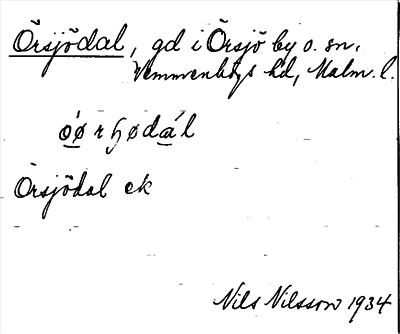 Örsjödal, gd i Örsjö by o. sn.
Vemmenhögs hd, Malm. l.
Örsjödal ek
Nils Nilsson 1934